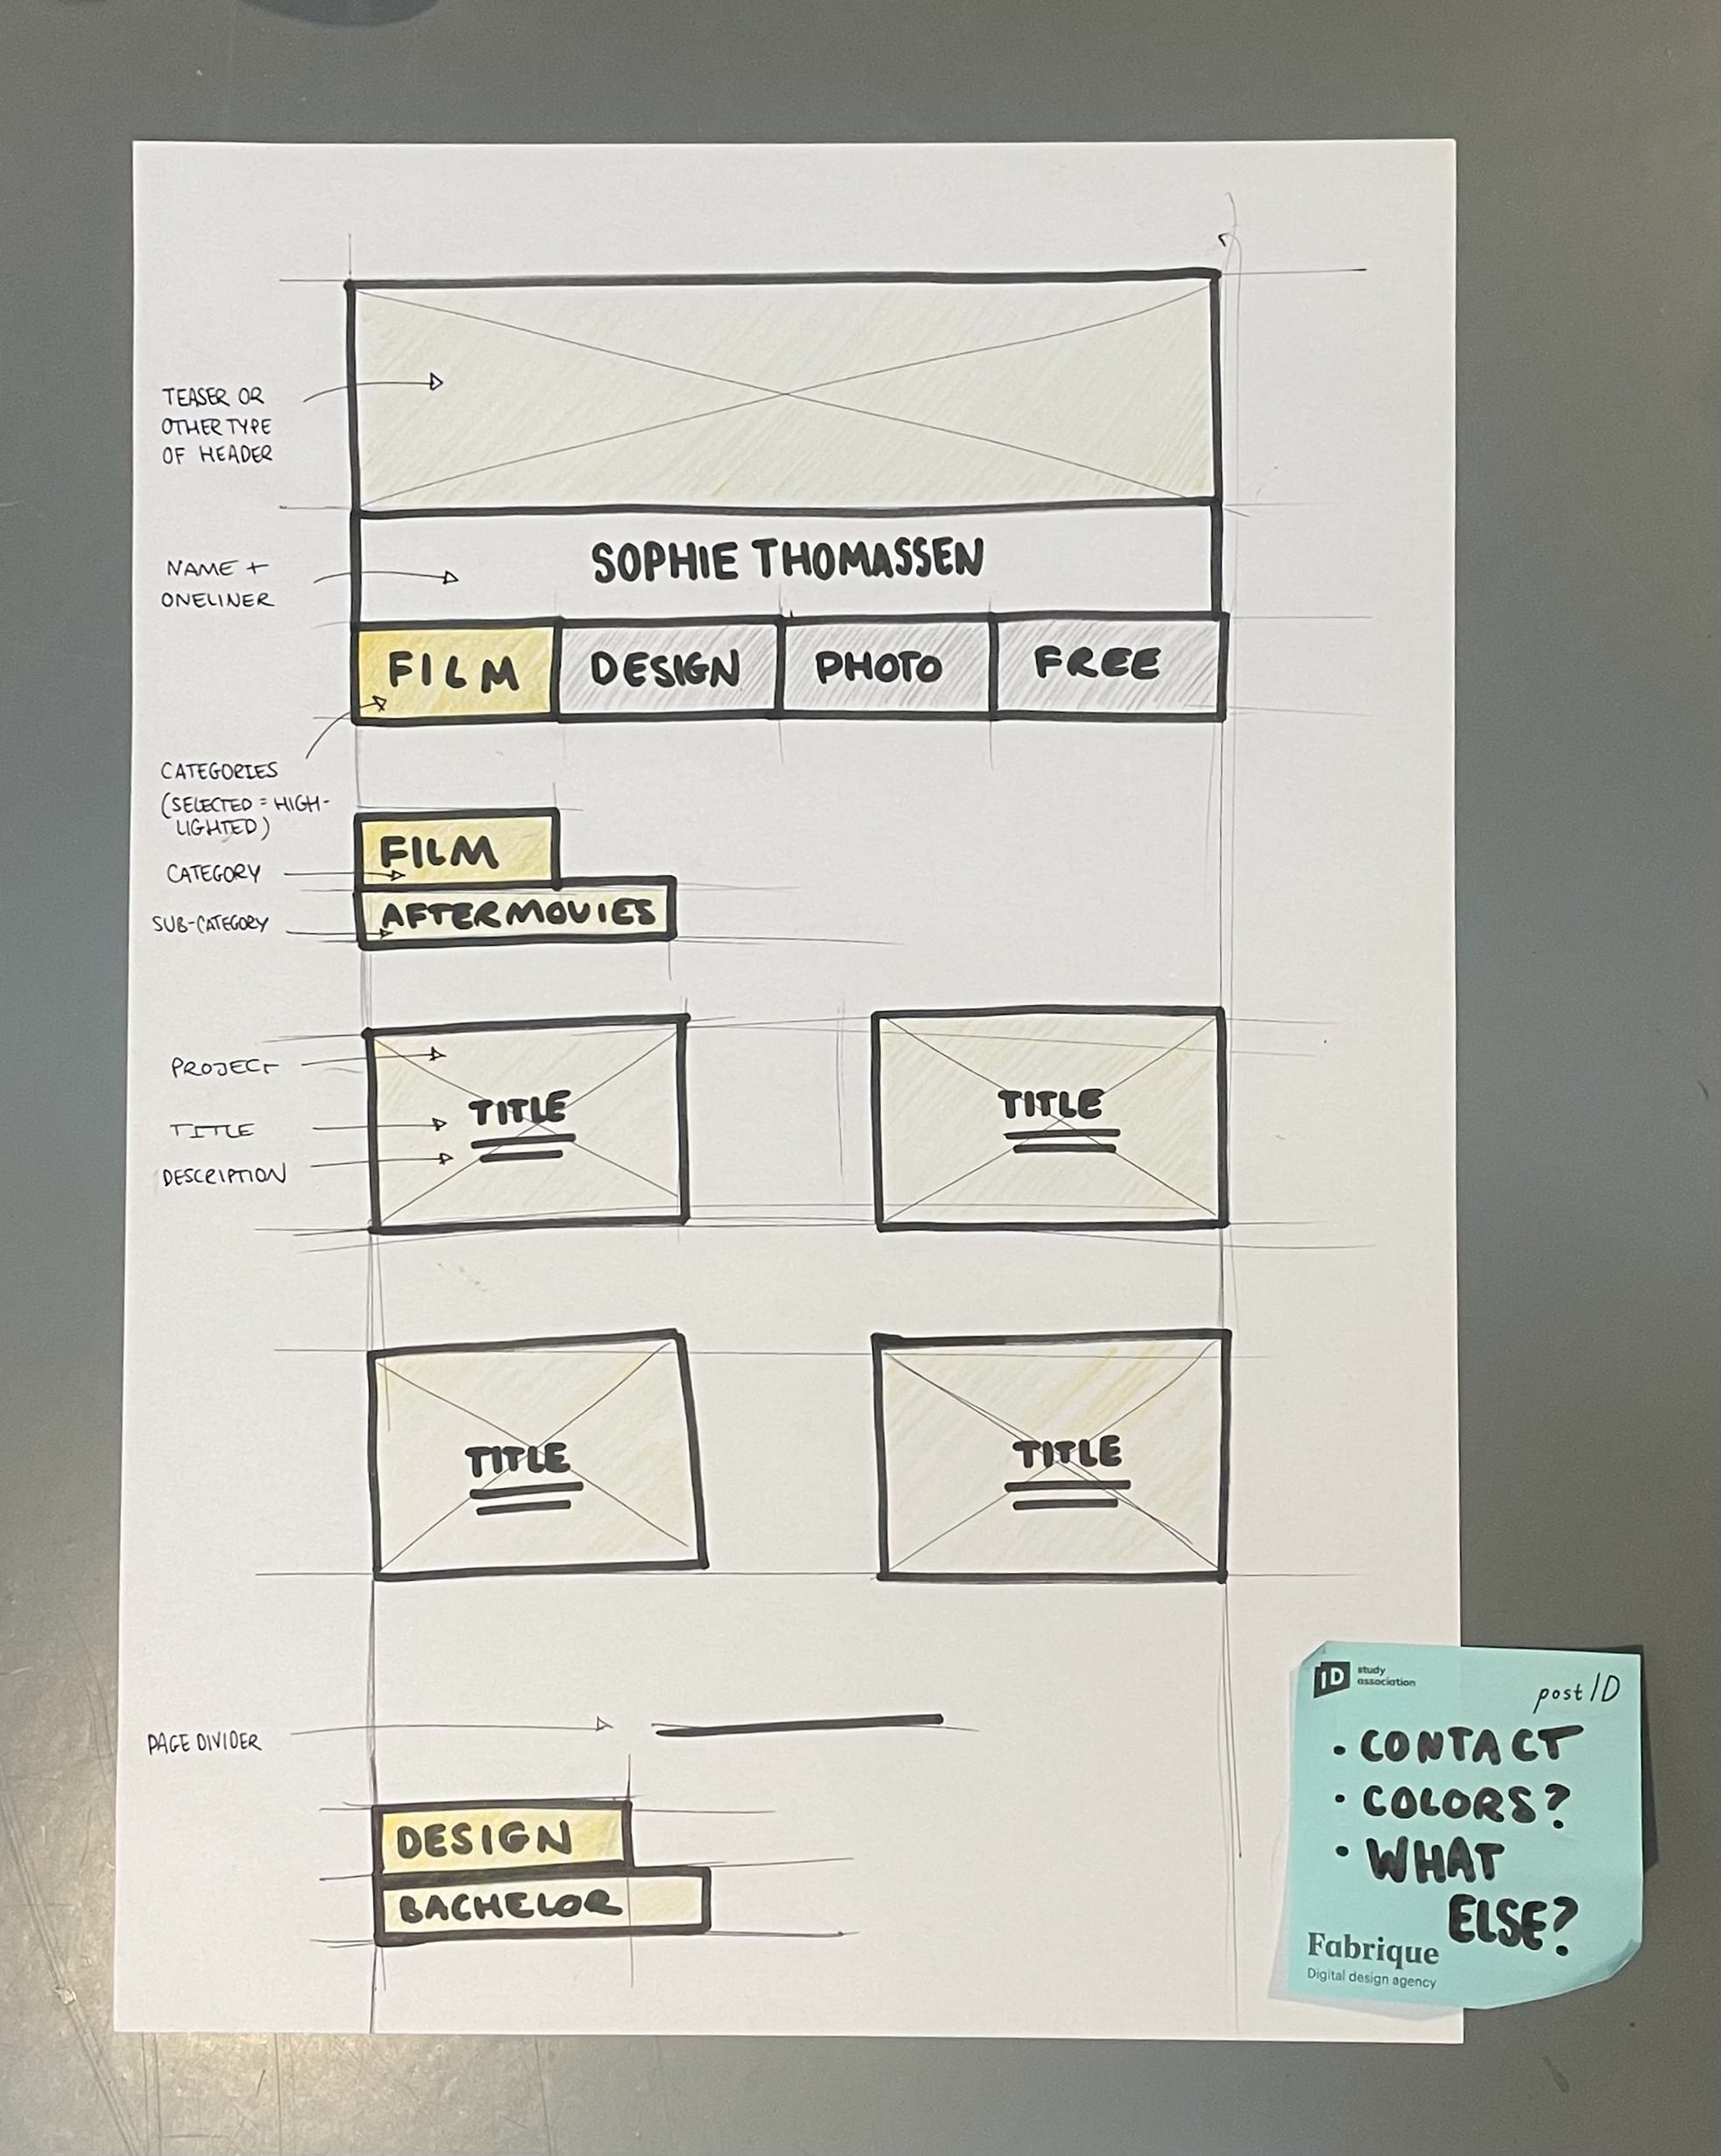 TEASER OR
OTHER TYPE
OF HEADER
NAME +
ONELINER
SOPHIE THOMASSEN
FILM
DESIGN
PHOTO
FREE
CATEGORIES
(SELECTED = HIGH-
LIGHTED)
FILM
CATEGORY
AFTERMOVIES
SUB-CATEGORY
PROJECT
TITLE
DESCRIPTION
TITLE
TITLE
TITLE
TITLE
PAGE DIVIDER
DESIGN
BACHELOR
ID study
association
post ID
• CONTACT
• COLORS?
• WHAT
ELSE?
Fabrique
Digital design agency